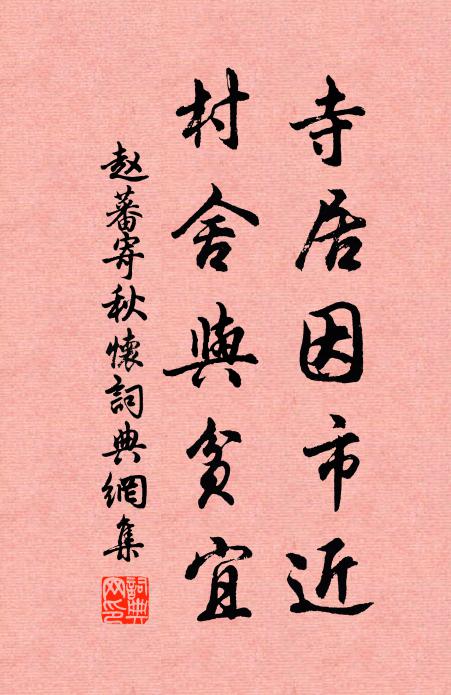 寺居因市近
村舍與貧宜
赵蕃寄秋懷詞典網集
詞典网印